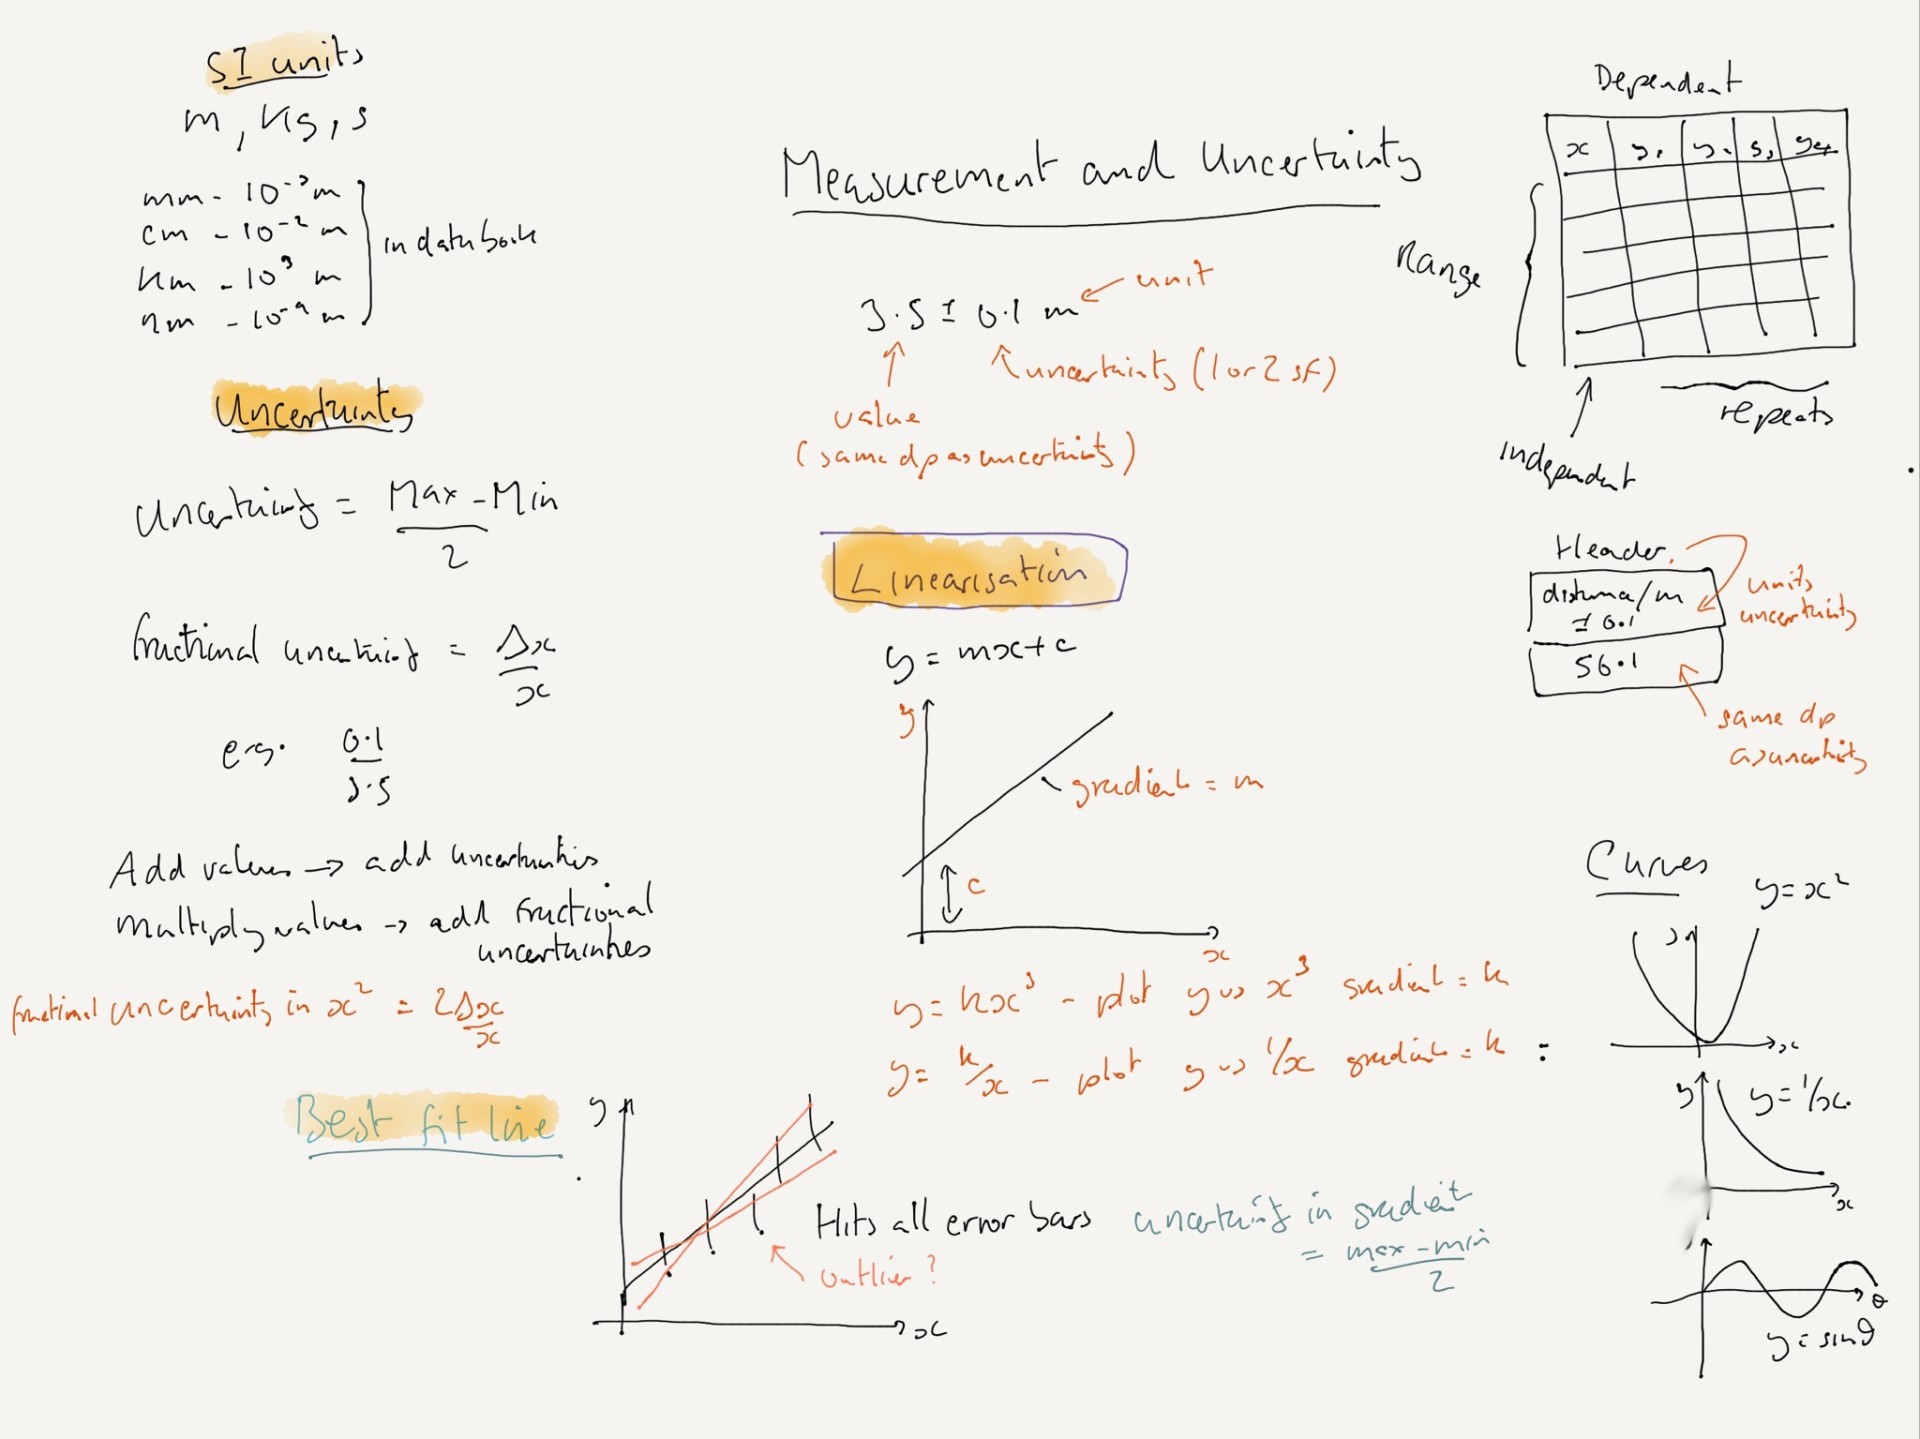 SI units
m, kg, s
mm - 10⁻³ m
cm - 10⁻² m
km - 10³ m
nm - 10⁻⁹ m
in data book
Uncertainty
Uncertainty = Max - Min
2
fractional uncertainty = Δx
x
e.g. 0.1
3.5
Add values → add uncertainties
multiply values → add fractional
uncertainties
fractional uncertainty in x² = 2Δx
x
Best fit line
y
x
Hits all error bars
outlier?
uncertainty in gradient
= max - min
2
Measurement and Uncertainty
3.5 ± 0.1 m
unit
uncertainty (1 or 2 sf)
value
(same dp as uncertainty)
Linearisation
y = mx + c
y
gradient = m
c
x
y = kx³ - plot y vs x³ gradient = k
y = k/x - plot y vs 1/x gradient = k
Dependent
x y₁
Range
repeats
Independent
Header
distance/m
± 0.1
56.1
units
uncertainty
same dp
as uncertainty
Curves
y = x²
x
y
y = 1/x
x
θ
y = sinθ